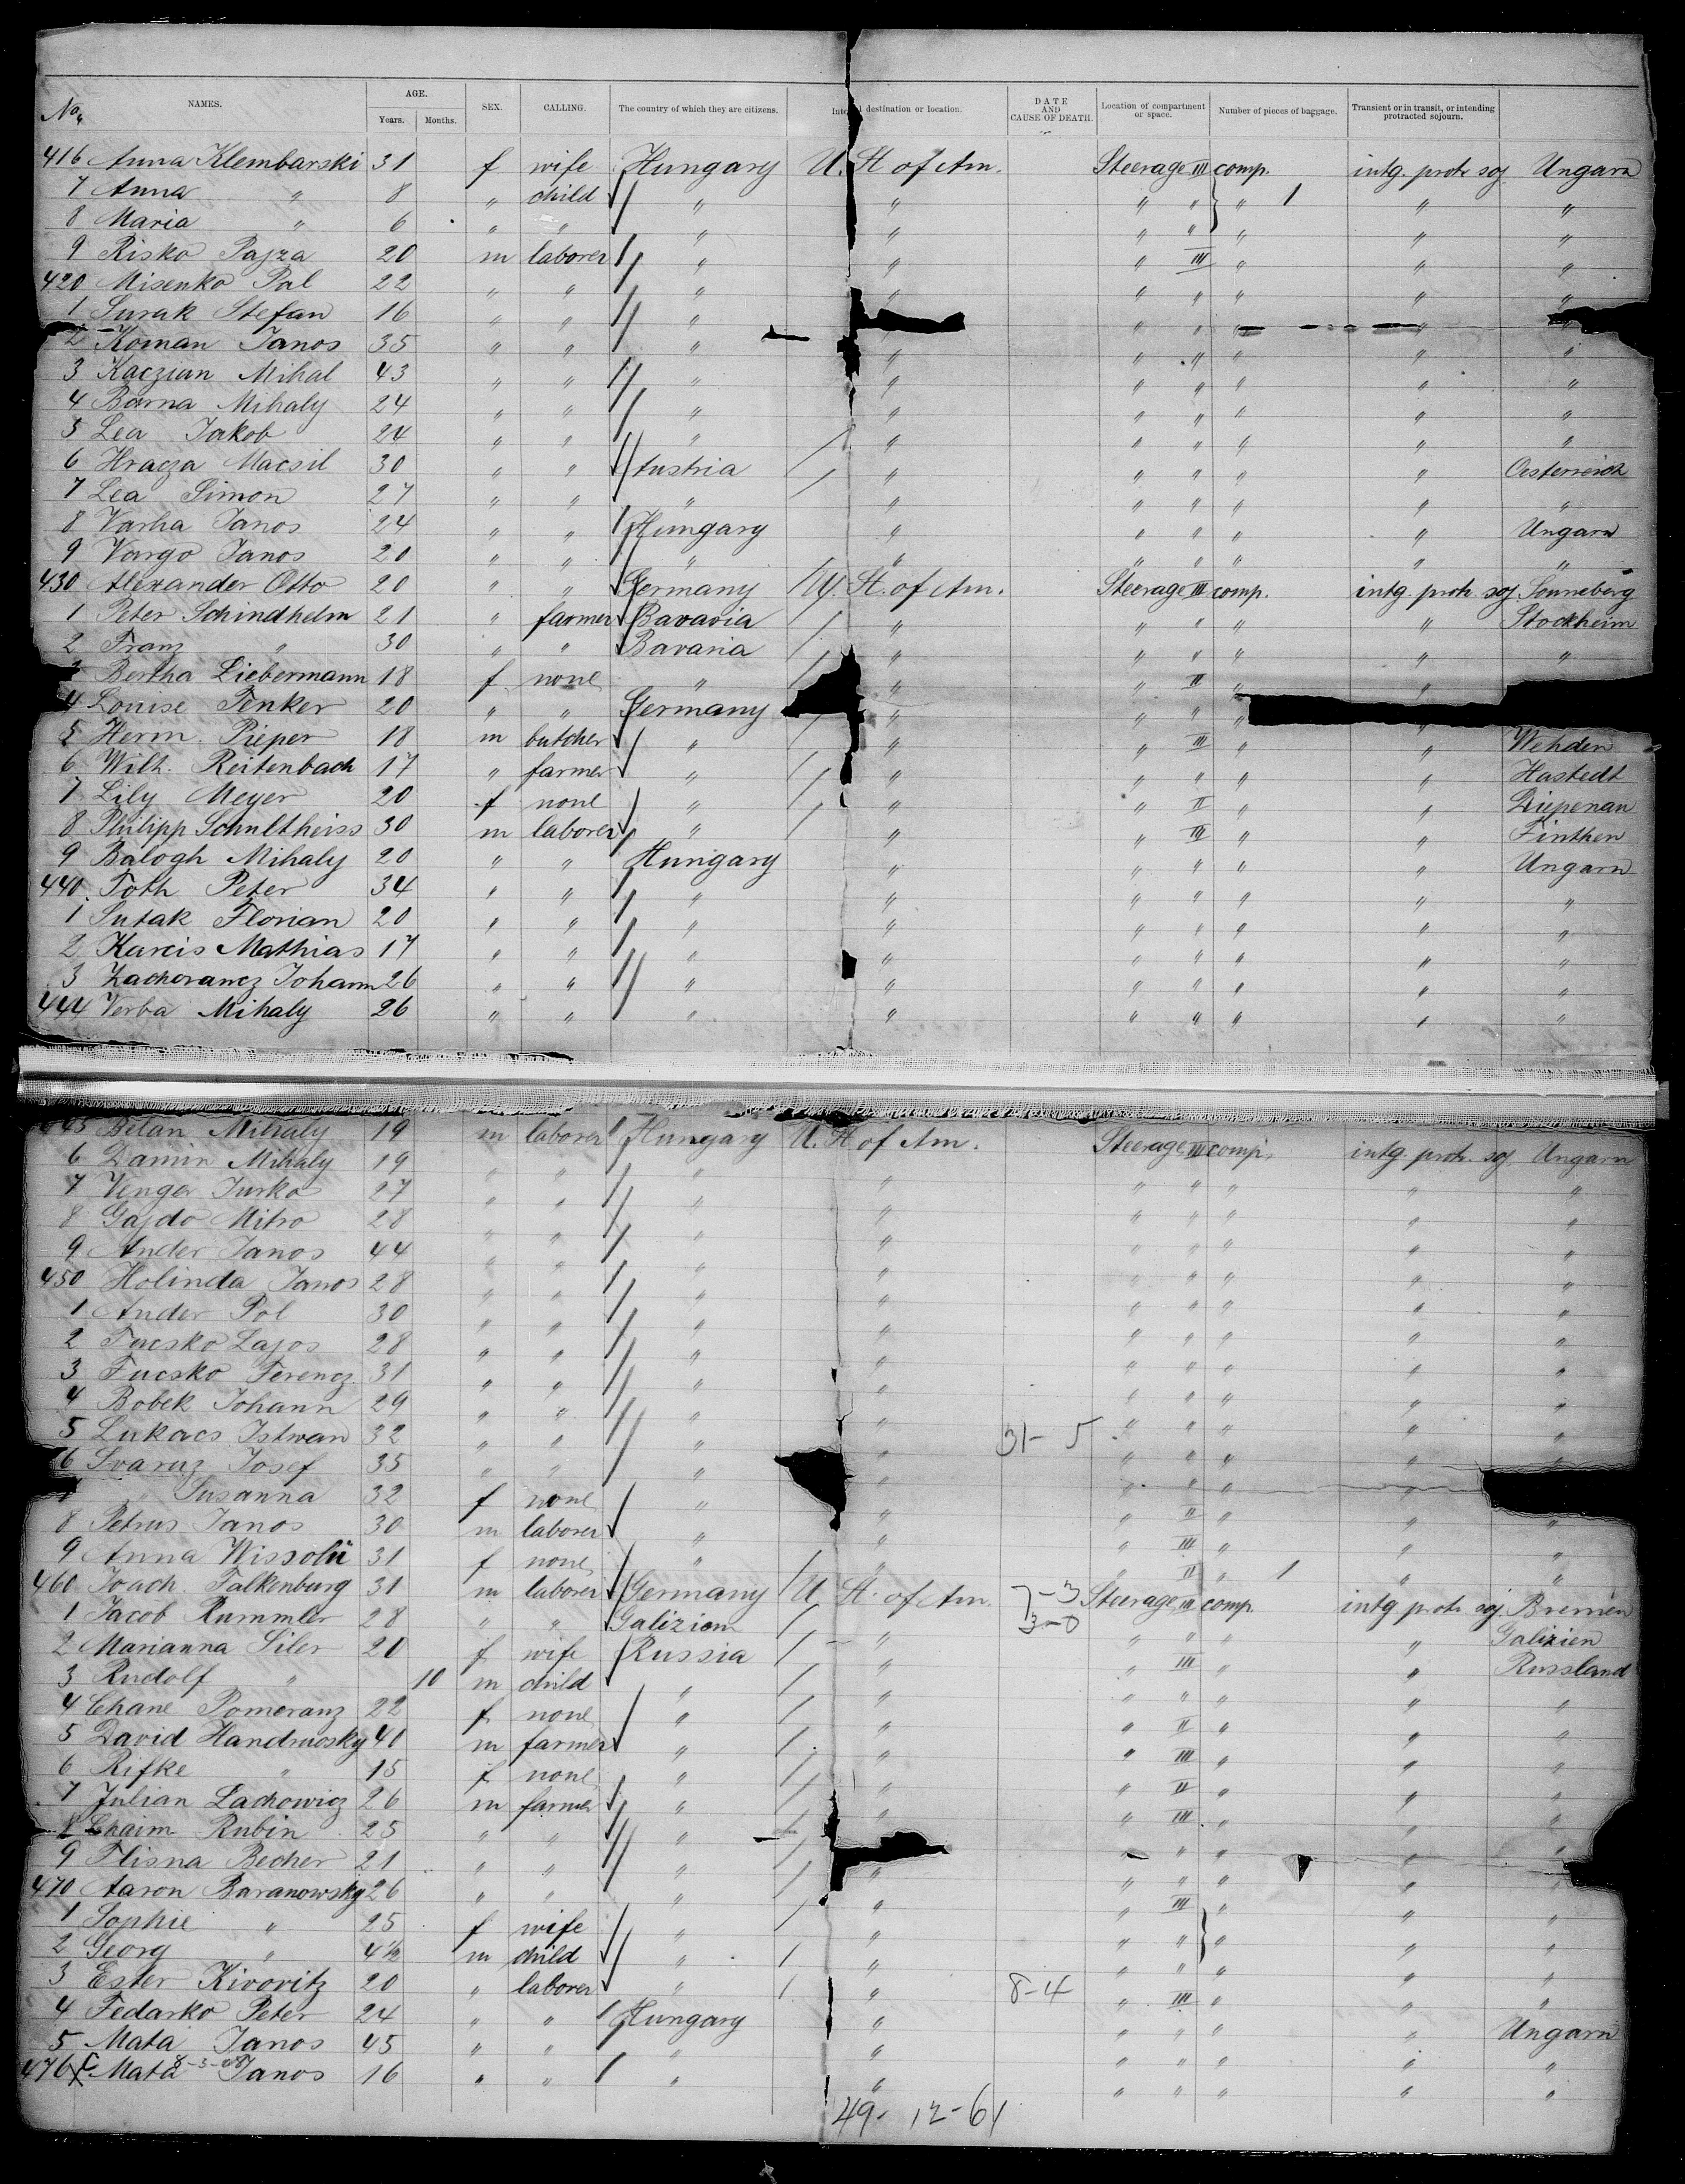 No. NAMES. AGE. Years. Months. SEX. CALLING. The country of which they are citizens. destination or location. DATE AND CAUSE OF DEATH. Location of compartment or space. Number of pieces of baggage. Transient or in transit, or intending protracted sojourn.
416 Anna Klembarski 31 f wife Hungary U. St of Am. Steerage III comp. intg. protr. soj Ungarn
7 Anna " 8 " child " " " " " 1 " "
8 Maria " 6 " " " " " " " " "
9 Risko Pajza 20 m laborer " " " III " " "
420 Misenko Pal 22 " " " " " " " " "
1 Surak Stefan 16 " " " " " " "
2 Koman Janos 35 " " " " " " " "
3 Kaczian Mihal 43 " " " " " " " " "
4 Barna Mihaly 24 " " " " " " " " "
5 Lea Jakob 24 " " " " " " " " "
6 Hracza Macsil 30 " " Austria " " " " " Oesterreich
7 Lea Simon 27 " " " " " " " " "
8 Varha Janos 24 " " Hungary " " " " " Ungarn
9 Vargo Janos 20 " " " " " " " " "
430 Alexander Otto 20 " " Germany U. St. of Am. Steerage III comp. intg. protr. soj Sonneberg
1 Peter Schindhelm 21 " farmer Bavaria " " " " " Stockheim
2 Franz " 30 " " Bavaria " " " " " "
3 Bertha Liebermann 18 f none " " " II " "
4 Louise Fenker 20 " " Germany " " " "
5 Herm. Pieper 18 m butcher " " " III " " Wehden
6 Wilh. Reitenbach 17 " farmer " " " " " " Hastedt
7 Lily Meyer 20 f none " " " II " " Diepenau
8 Philipp Schultheiss 30 m laborer " " " III " " Finthen
9 Balogh Mihaly 20 " " Hungary " " " " " Ungarn
440 Toth Peter 34 " " " " " " " " "
1 Sutak Florian 20 " " " " " " " " "
2 Karcis Mathias 17 " " " " " " " " "
3 Zachorancz Johann 26 " " " " " " " " "
444 Verba Mihaly 26 " " " " " " " " "
Belan Mihaly 19 m laborer Hungary U. St of Am. Steerage III comp. intg. protr. soj Ungarn
6 Damin Mihaly 19 " " " " " " " " "
7 Venger Jurko 27 " " " " " " " " "
8 Gajdo Mitro 28 " " " " " " " " "
9 Ander Janos 44 " " " " " " " " "
450 Holinda Janos 28 " " " " " " " " "
1 Ander Pol 30 " " " " " " " " "
2 Fucsko Lajos 28 " " " " " " " " "
3 Fucsko Ferencz 31 " " " " " " " " "
4 Bobek Johann 29 " " " " " " " " "
5 Lukacs Istwan 32 " " " " 31- 5 " " " " "
6 Svaruz Josef 35 " " " " " " " " "
" Susanna 32 f none " " " II " "
8 Petrus Janos 30 m laborer " " " III " " "
9 Anna 31 f none " " " II " 1 " "
460 Joach. Falkenburg 31 m laborer Germany U. St. of Am. 7-3 Steerage III comp. intg protr soj. Bremen
1 Jacob Rummler 28 " " Galizien " 3-0 " " " " Galizien
2 Marianna Siler 20 f wife Russia " " III " " Russland
3 Rudolf " 10 m child " " " " " " "
4 Chane Pomeranz 22 f none " " " II " " "
5 David 40 m farmer " " " III " " "
6 Rifke " 15 f none " " " II " " "
7 Julian Lachowicz 26 m farmer " " " III " " "
8 Chaim Rubin 25 " " " " " " "
9 Flisna Becher 21 " " " " " " " " "
470 Aaron Baranowsky 26 " " " " " III " " "
1 Sophie " 25 f wife " " " " " " "
2 Georg " 4½ m child " " " " " " "
3 Ester Kivovitz 20 " laborer " " 8-4 " III " " "
4 Fedarko Peter 24 " " Hungary " " " " " Ungarn
5 Mata Janos 45 " " " " " " " " "
476 Mata Janos 16 " " " " " " " " "
49- 12-61